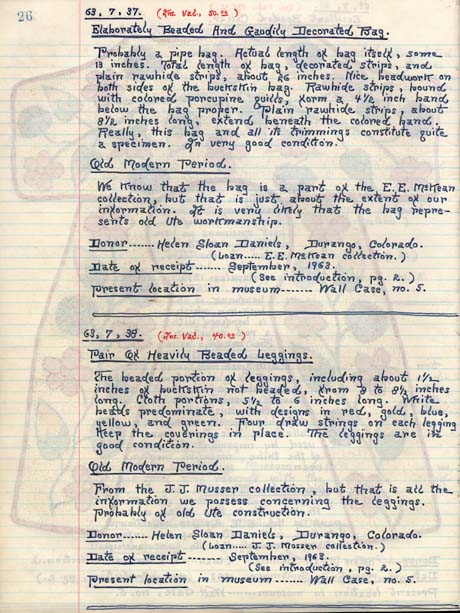 26
63, 7, 37. (Ins. Val., 50.00)
Elaborately Beaded And Gaudily Decorated Bag.
Probably a pipe bag. Actual length of bag itself, some
13 inches. Total length of bag, decorated strips, and
plain rawhide strips, about 26 inches. Nice beadwork on
both sides of the buckskin bag. Rawhide strips, bound
with colored porcupine quills, form a 4 1/2 inch band
below the bag proper. Plain rawhide strips, about
8 1/2 inches long, extend beneath the colored band.
Really, this bag and all its trimmings constitute quite
a specimen. In very good condition.
Old Modern Period.
We know that the bag is a part of the E.E. McKean
collection, but that is just about the extent of our
information. It is very likely that the bag repre-
sents old Ute workmanship.
Donor...... Helen Sloan Daniels, Durango, Colorado.
(Loan..... E.E. McKean collection.)
Date of receipt...... September, 1963.
(See introduction, pg. 2.)
Present location in museum....... Wall Case, no. 5.
63, 7, 38. (Ins. Val., 40.00)
Pair Of Heavily Beaded Leggings.
The beaded portion of leggings, including about 1 1/2
inches of buckskin not beaded, from 8 to 8 1/2 inches
long. Cloth portions, 5 1/2 to 6 inches long. White
beads predominate, with designs in red, gold, blue,
yellow, and green. Four draw strings on each legging
keep the coverings in place. The leggings are in
good condition.
Old Modern Period.
From the J.J. Musser collection, but that is all the
information we possess concerning the leggings.
Probably of old Ute construction.
Donor...... Helen Sloan Daniels, Durango, Colorado.
(Loan..... J.J. Musser collection.)
Date of receipt ....... September, 1963.
(See introduction, pg. 2.)
Present location in museum ...... Wall Case, no. 5.